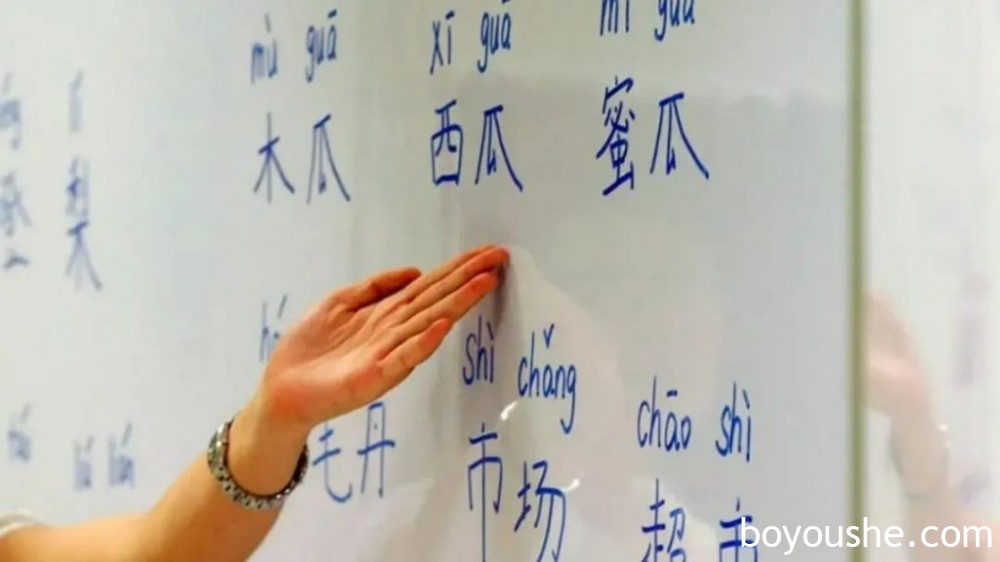 mù guā xī guā mì guā
木瓜 西瓜 蜜瓜
梨
shì chǎng chāo shì
毛丹 市场 超市
boyoushe.com